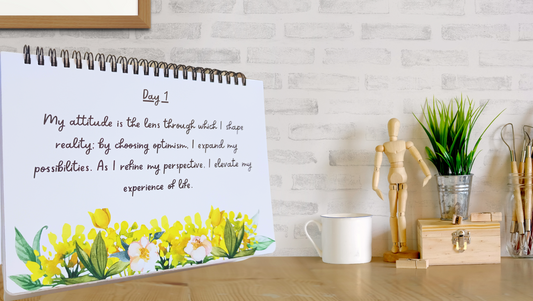 Day 1
My attitude is the lens through which I shape
reality; by choosing optimism, I expand my
possibilities. As I refine my perspective, I elevate my
experience of life.